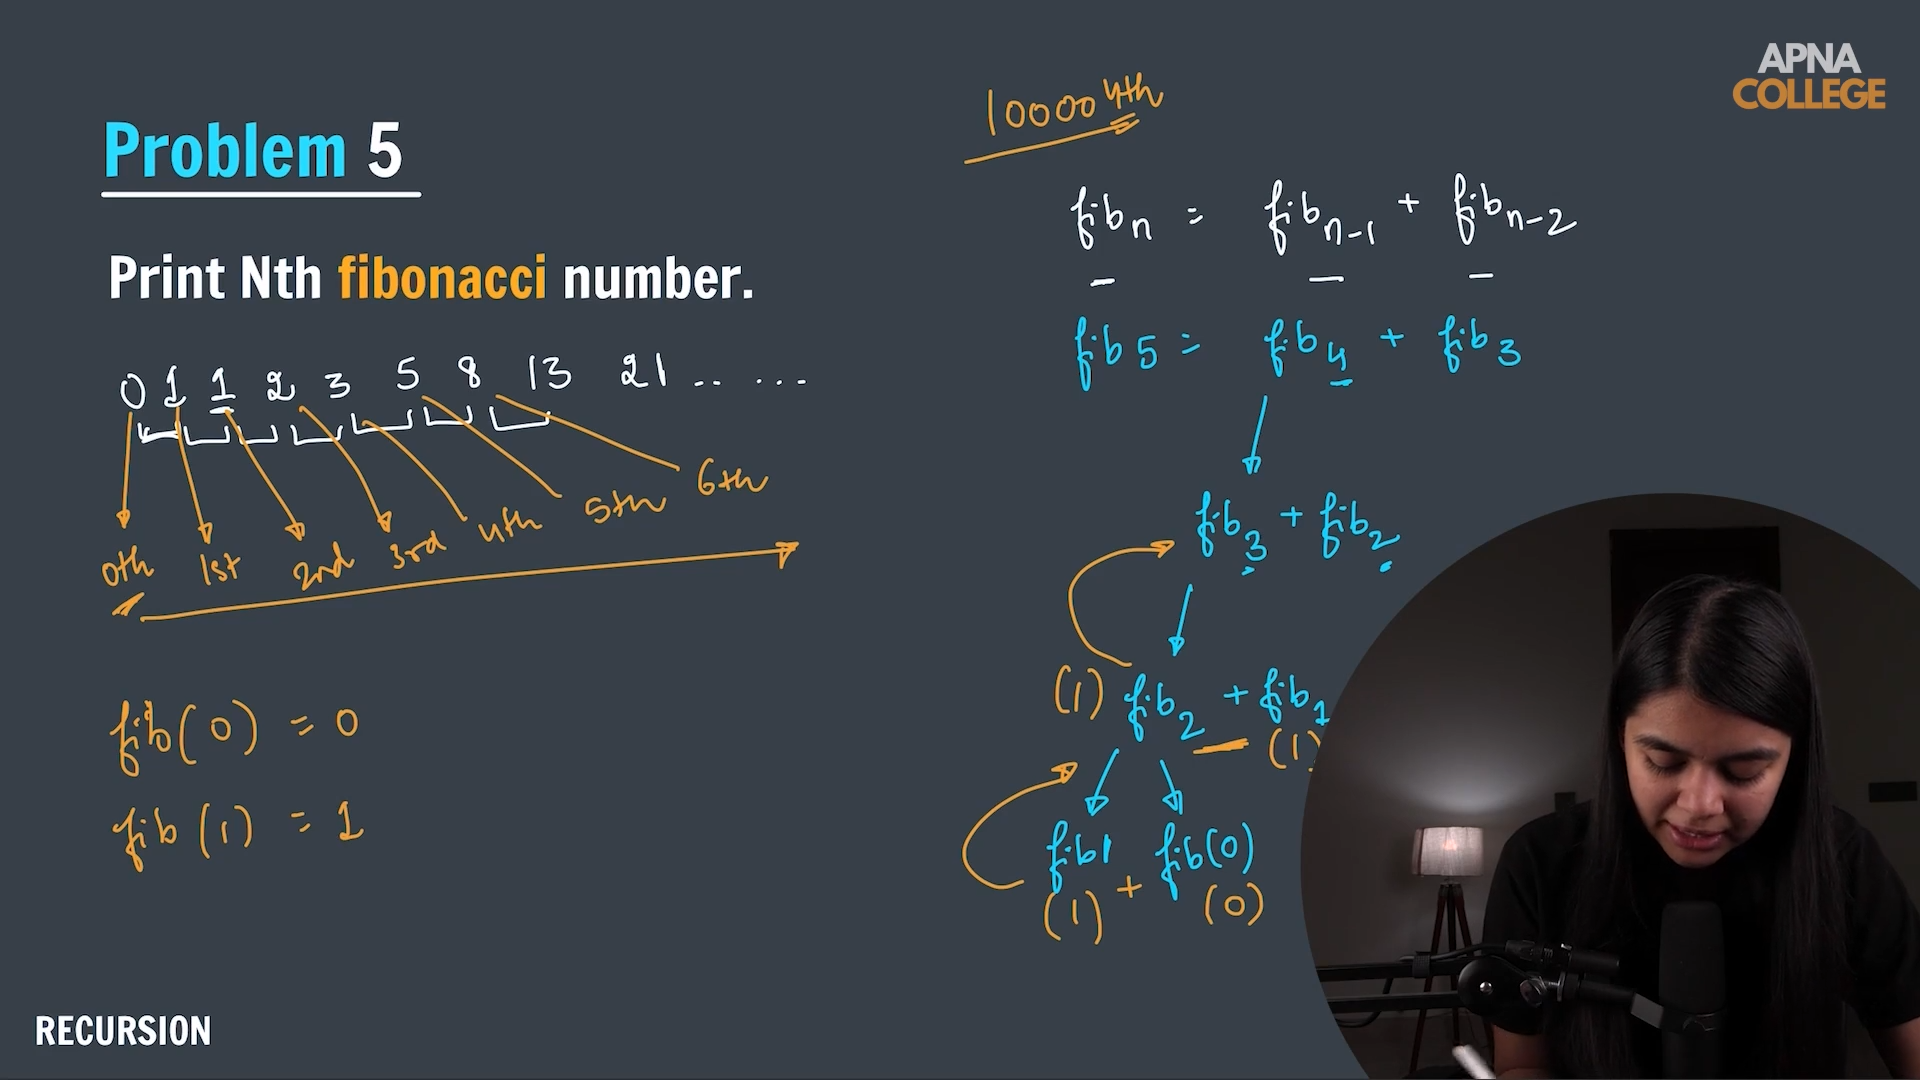 APNA
COLLEGE
Problem 5
Print Nth fibonacci number.
0 1 1 2 3 5 8 13 21 .. ...
0th 1st 2nd 3rd 4th 5th 6th
fib(0) = 0
fib(1) = 1
10000 4th
fib n = fib n-1 + fib n-2
fib 5 = fib 4 + fib 3
fib 3 + fib 2
(1) fib 2 + fib 1
(1)
fib1 fib(0)
(1) + (0)
RECURSION